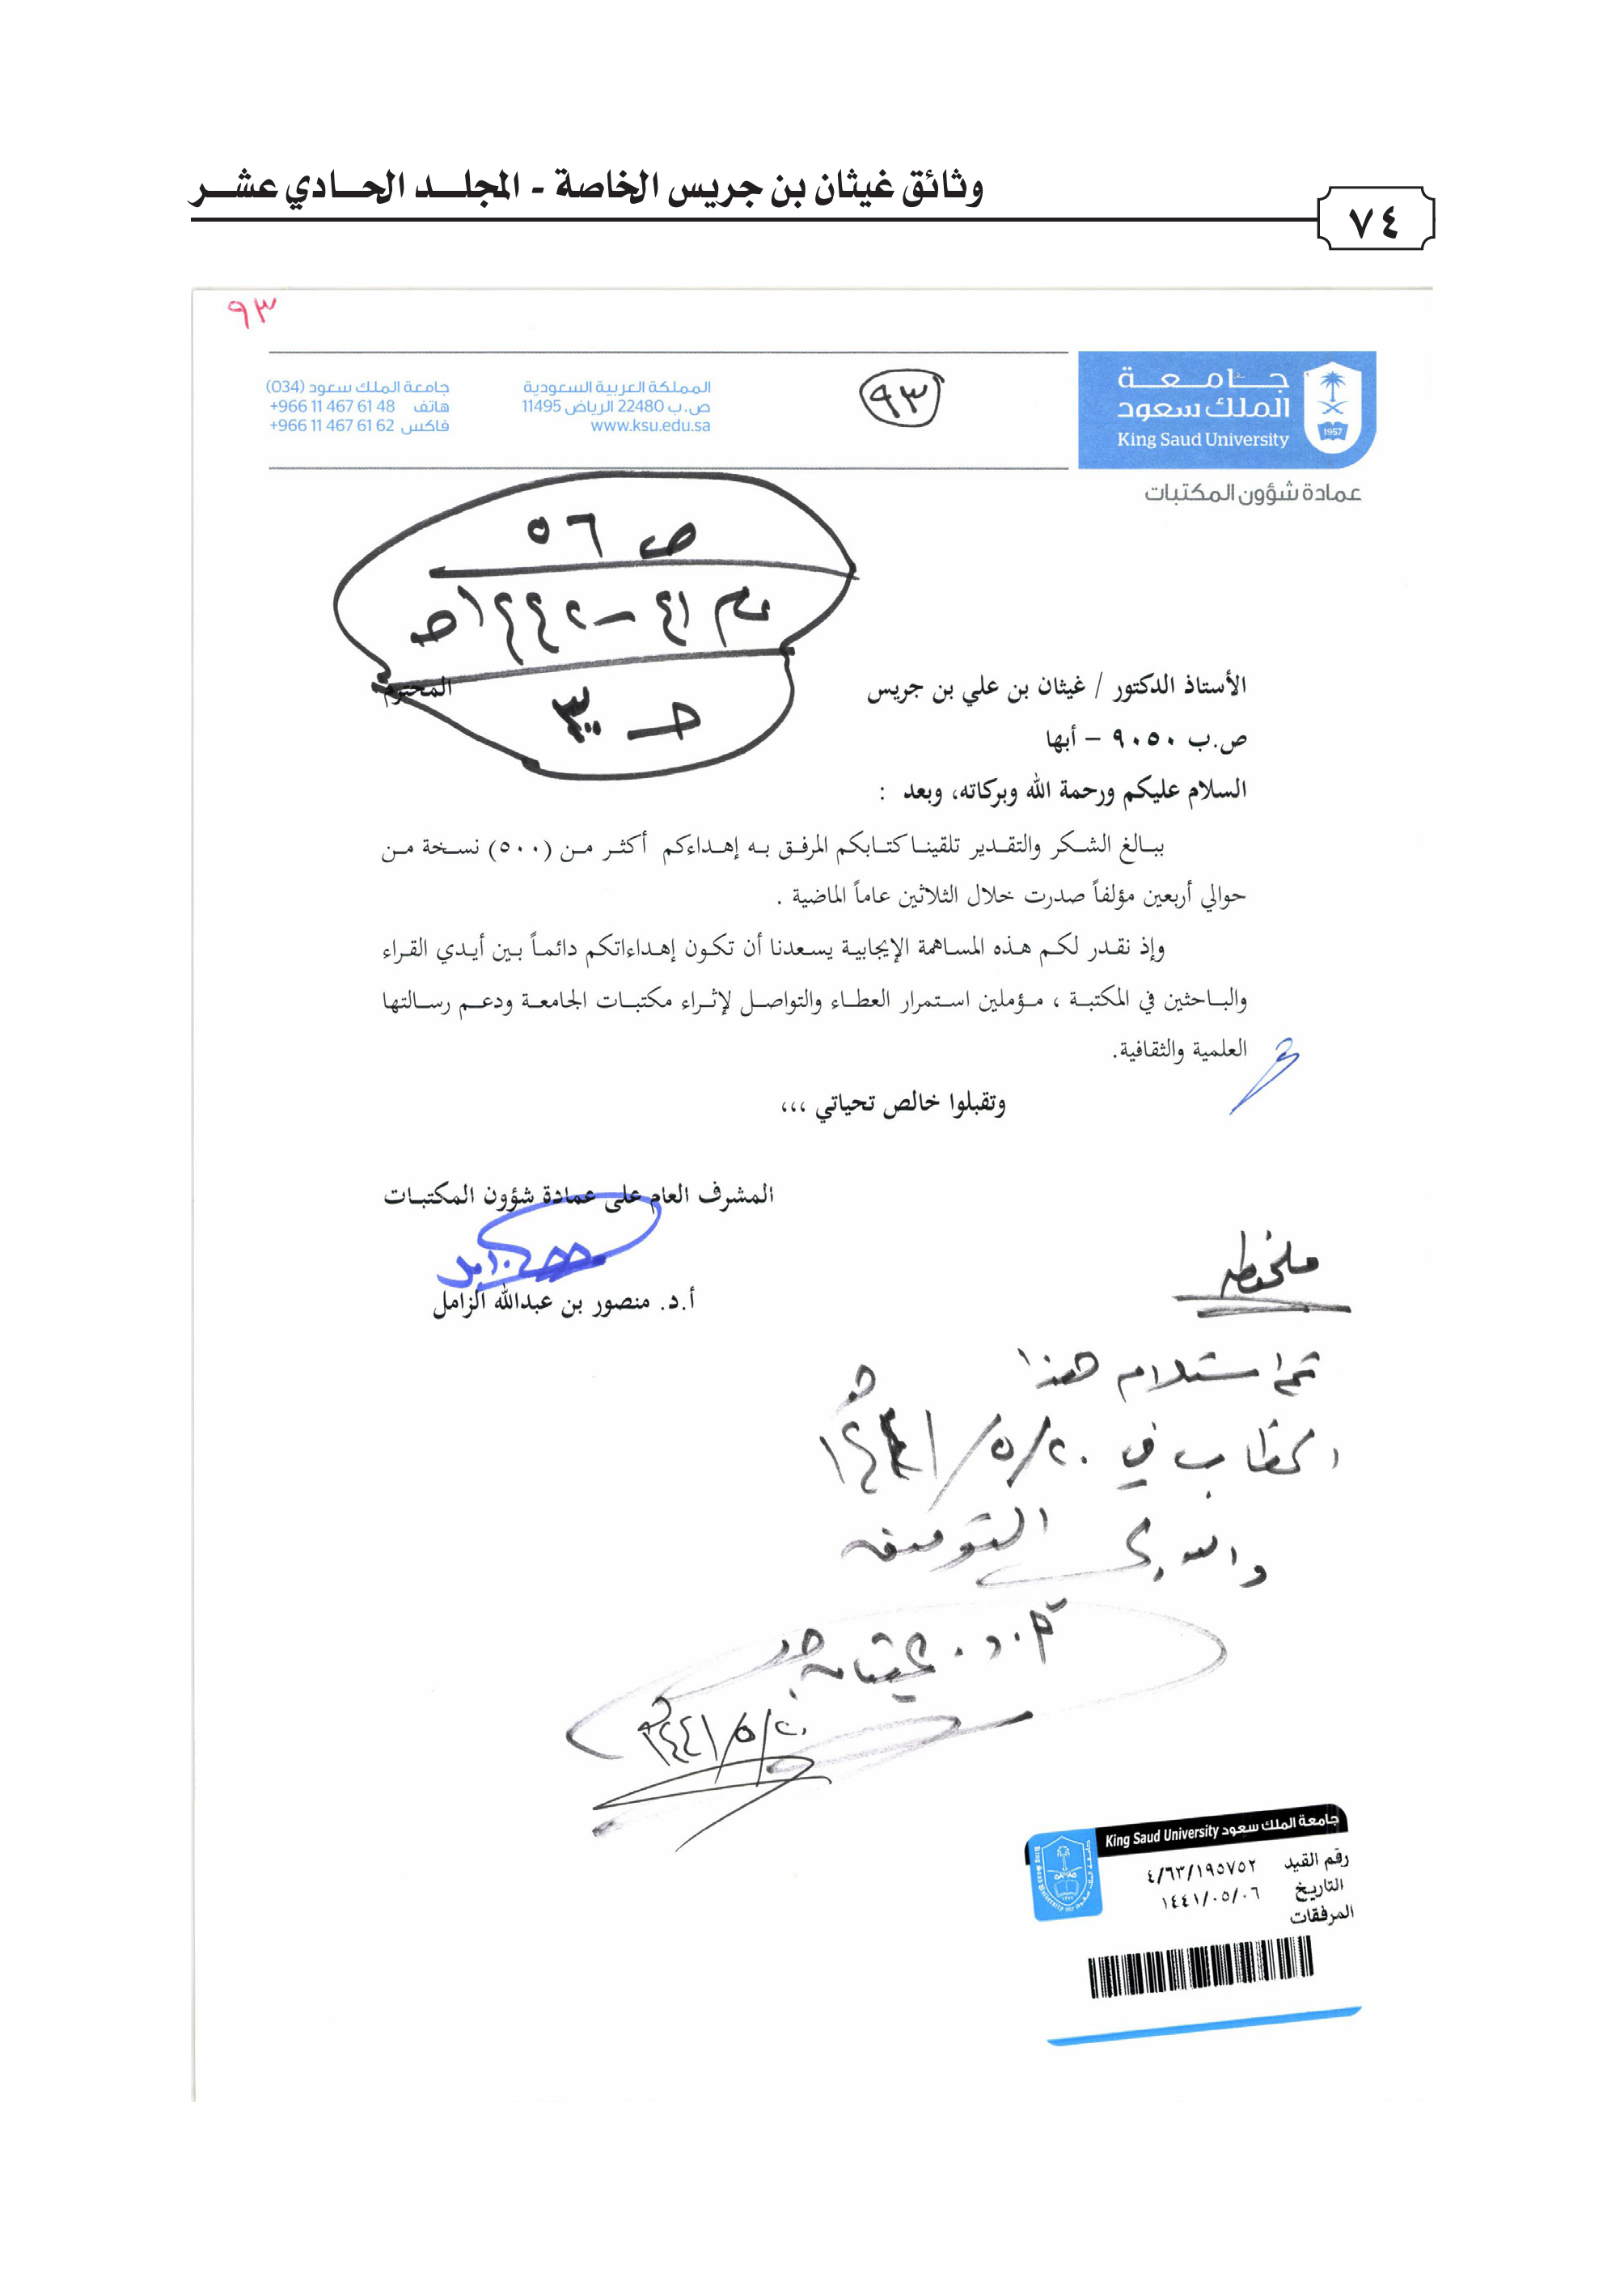 وثائق غيثان بن جريس الخاصة - المجلد الحادي عشر
٧٤
٩٣
جامعة
الملك سعود
King Saud University
1957
عمادة شؤون المكتبات
٩٣
المملكة العربية السعودية
ص.ب 22480 الرياض 11495
www.ksu.edu.sa
جامعة الملك سعود (034)
هاتف +966 11 467 61 48
فاكس +966 11 467 61 62
ص ٥٦
٤١ - ١٤٤٢هـ
الأستاذ الدكتور / غيثان بن علي بن جريس المحترم
ص.ب ٩٠٥٠ – أبها
السلام عليكم ورحمة الله وبركاته، وبعد :
ببالغ الشكر والتقدير تلقينا كتابكم المرفق به إهداءكم أكثر من (٥٠٠) نسخة من
حوالي أربعين مؤلفاً صدرت خلال الثلاثين عاماً الماضية .
وإذ نقدر لكم هذه المساهمة الإيجابية يسعدنا أن تكون إهداءاتكم دائماً بين أيدي القراء
والباحثين في المكتبة ، مؤملين استمرار العطاء والتواصل لإثراء مكتبات الجامعة ودعم رسالتها
العلمية والثقافية.
وتقبلوا خالص تحياتي ،،،
المشرف العام على عمادة شؤون المكتبات
أ.د. منصور بن عبدالله الزامل
ملحظه
تم استلام هذا
الخطاب في ٢٠/٥/١٤٤١هـ
والله ولي التوفيق
أ.د. غيثان جريس
٢٠/٥/١٤٤١هـ
جامعة الملك سعود King Saud University
رقم القيد ٤/٦٣/١٩٥٧٥٢
التاريخ ١٤٤١/٠٥/٠٦
المرفقات